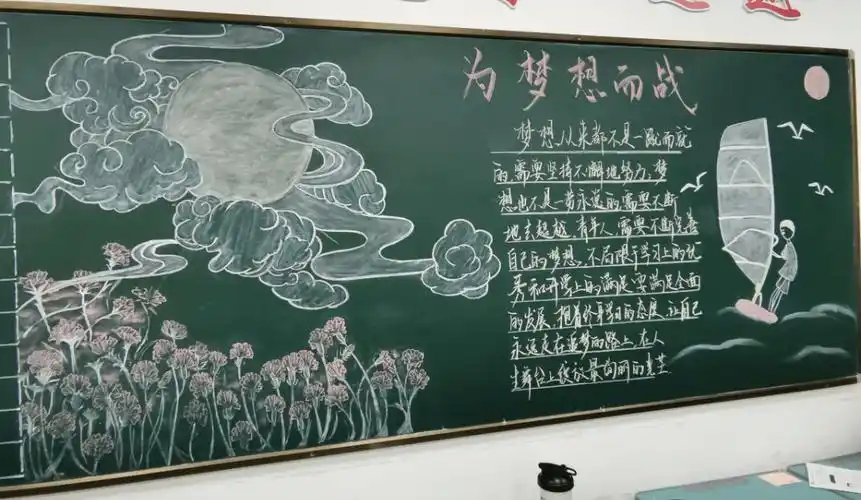 为梦想而战
梦想从来都不是一蹴而就
的,需要坚持不懈地努力,梦
想也不是一劳永逸的,需要不断
地去超越,青年人,需要不断完善
自己的梦想,不局限于学习上的优
秀和开学上的满足,要满足全面
的发展,抱着终身学习的态度,让自己
永远走在追梦的路上,在人
生舞台上绽放最绚丽的光芒.